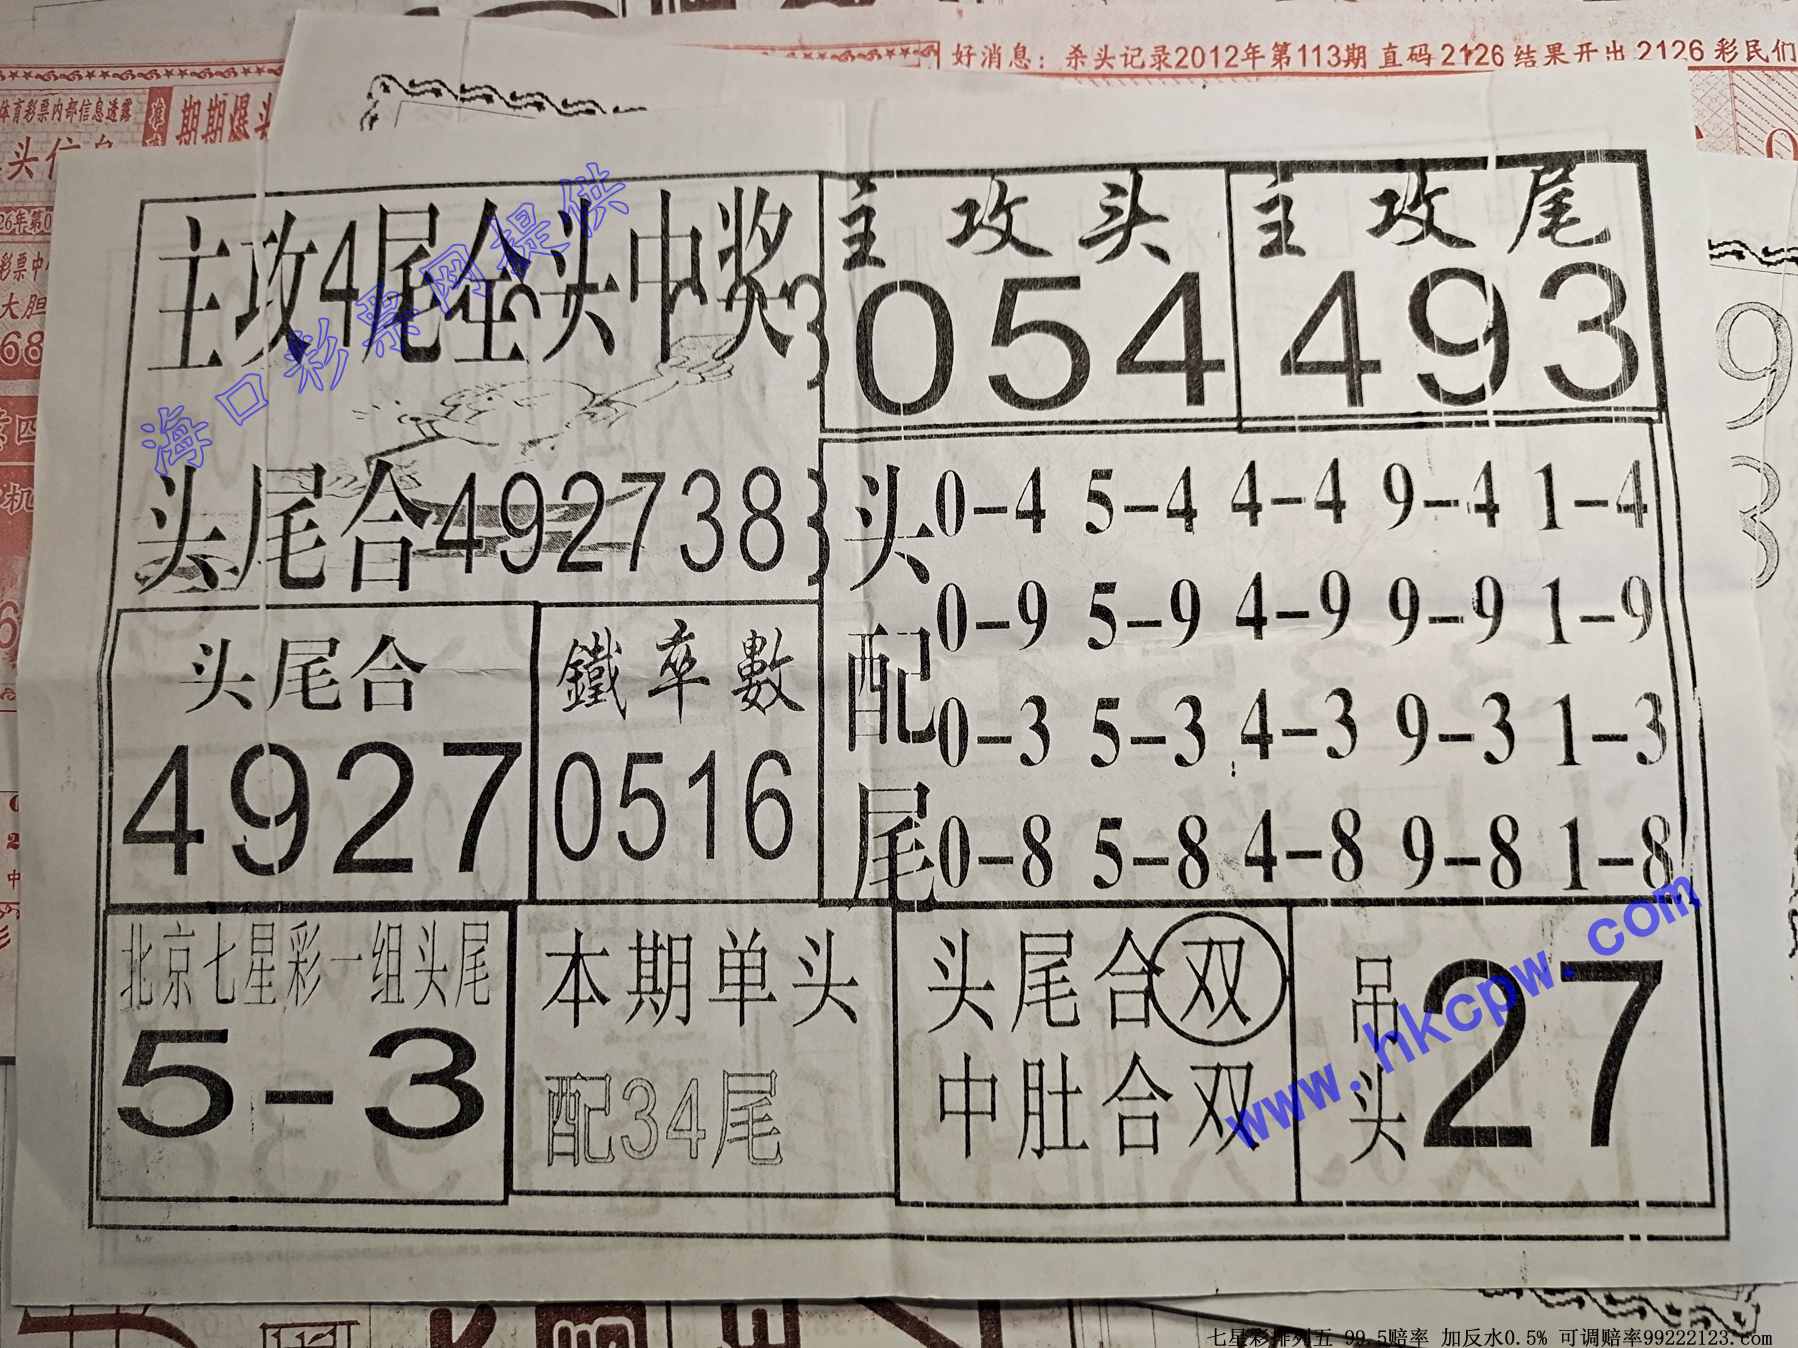 好消息：杀头记录2012年第113期 直码2126 结果开出 2126 彩民们
体育彩票内部信息透露
期期爆头
主攻4尾全头中奖
主攻头
054
主攻尾
493
头尾合492738
头配尾
0-4 5-4 4-4 9-4 1-4
0-9 5-9 4-9 9-9 1-9
0-3 5-3 4-3 9-3 1-3
0-8 5-8 4-8 9-8 1-8
头尾合
4927
鐵卒數
0516
北京七星彩一组头尾
5-3
本期单头
配34尾
头尾合双
中肚合双
吊头
27
海口彩票网提供
www.hkcpw.com
七星彩排列五 99.5赔率 加反水0.5% 可调赔率99222123.com